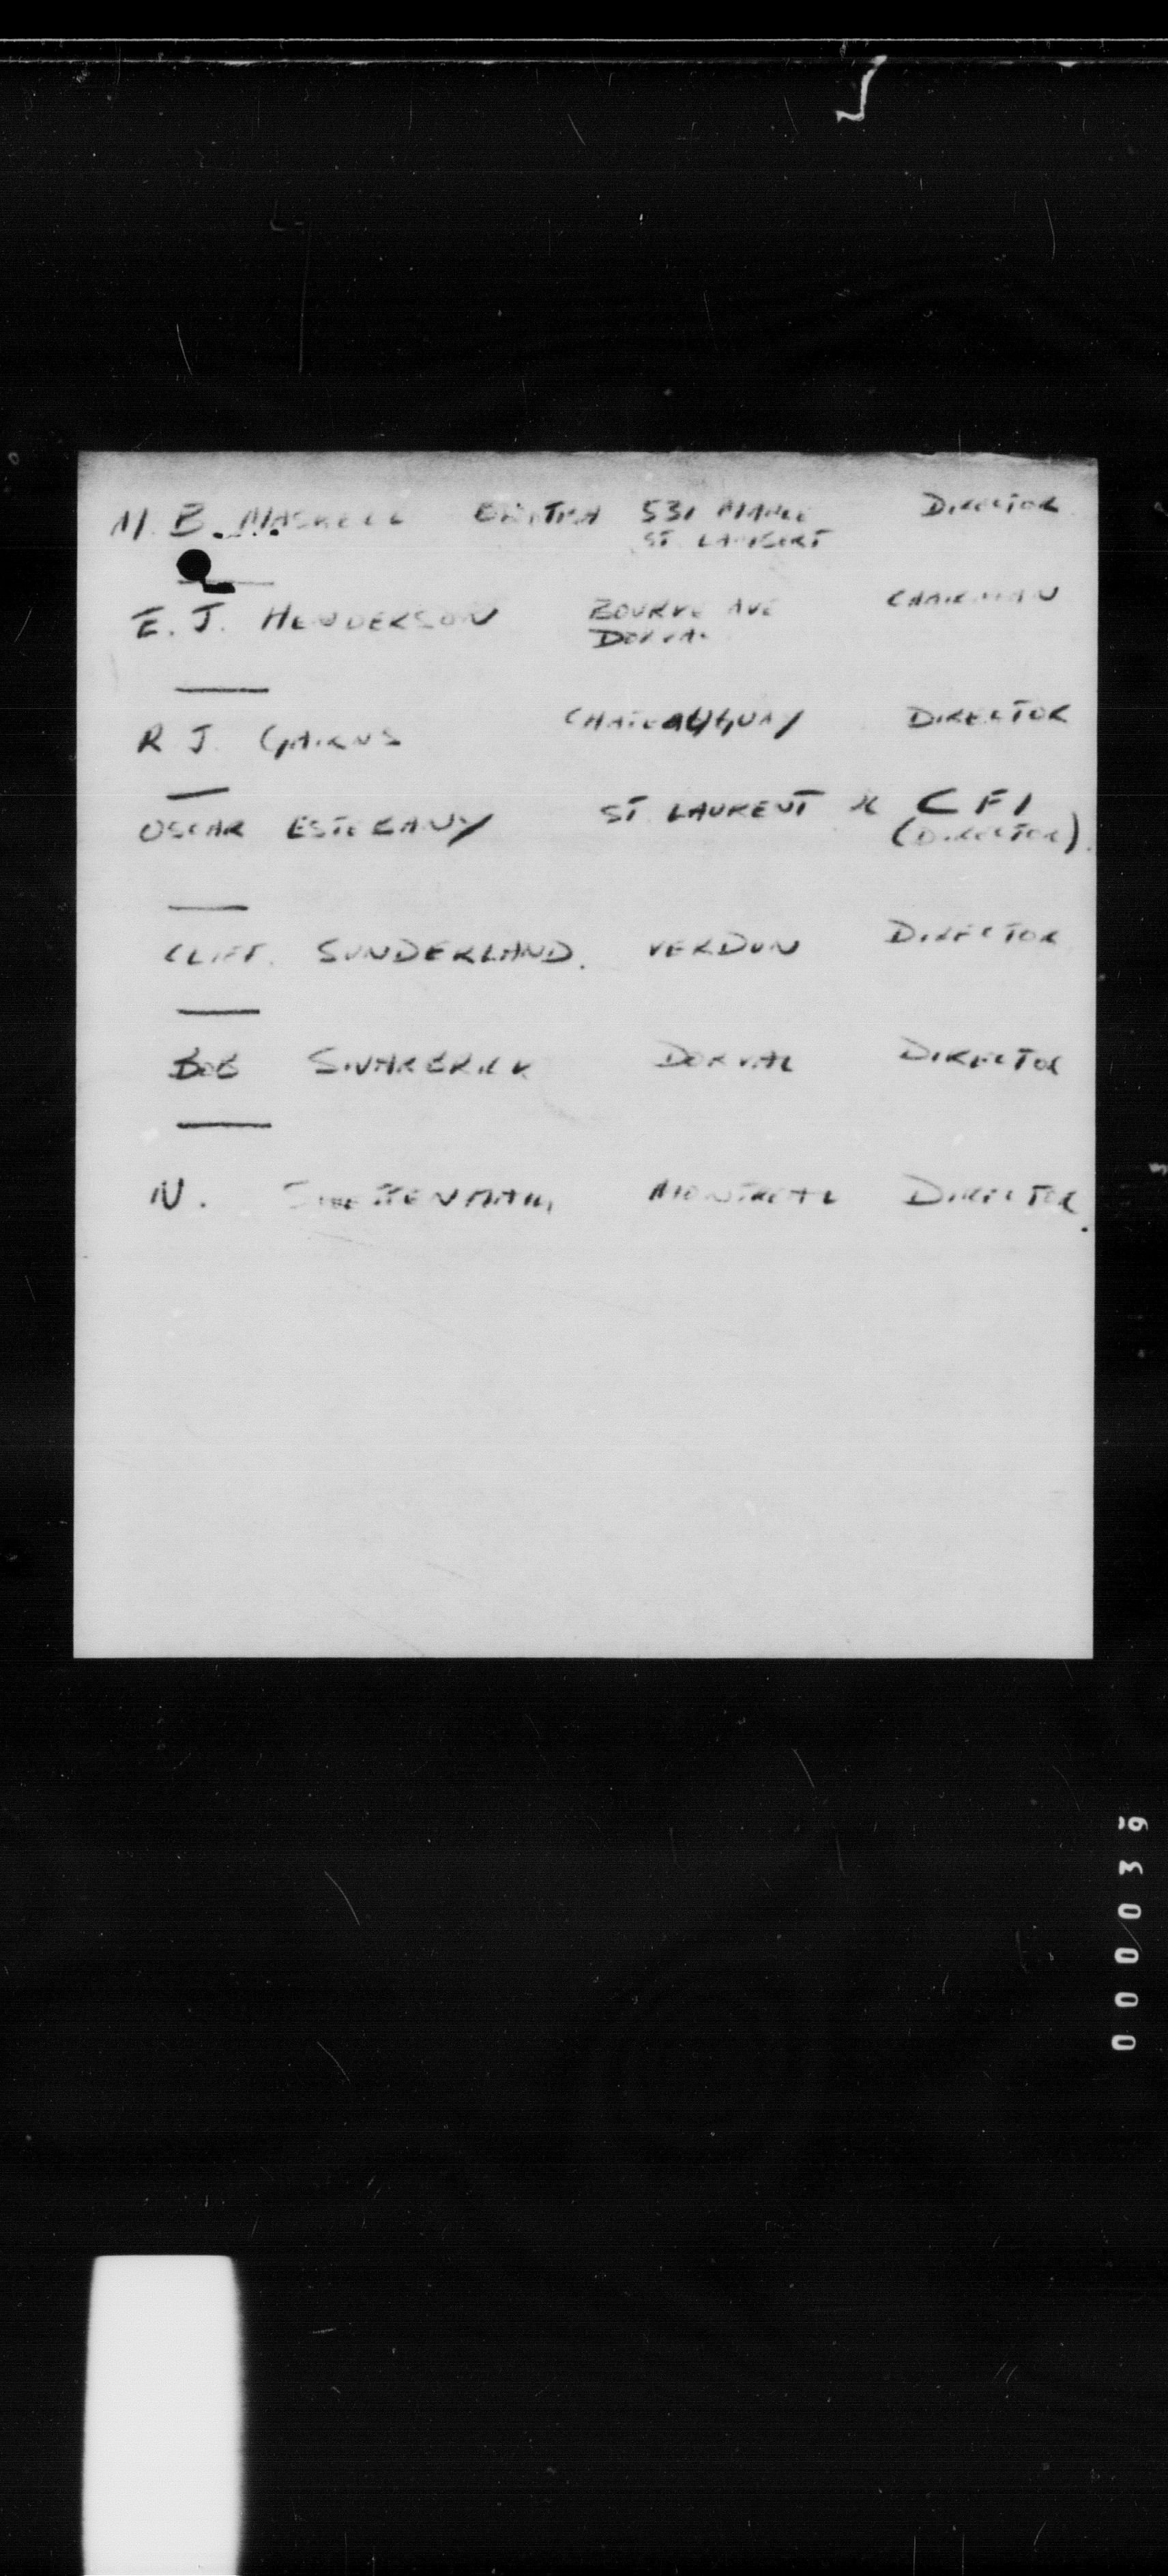 M. B. MASKELL BRITISH 531 MAPLE DIRECTOR
ST. LAMBERT
E. J. HENDERSON AVE CHAIRMAN
DORVAL
R J. CAIRNS CHATEAUGUAY DIRECTOR
OSCAR ESTEBANY ST. LAURENT CFI
(DIRECTOR).
CLIFF. SUNDERLAND. VERDUN DIRECTOR
BOB SWARBRICK DORVAL DIRECTOR
N. MONTREAL DIRECTOR.
000039